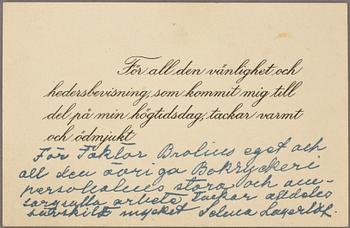 För all den vänlighet och
hedersbevisning, som kommit mig till
del på min högtidsdag, tackar varmt
och ödmjukt
För Faktor Brolins eget och
all den övriga Boktryckeri
personalens stora och om-
sorgsfulla arbete tackar alldeles
särskilt mycket Selma Lagerlöf.